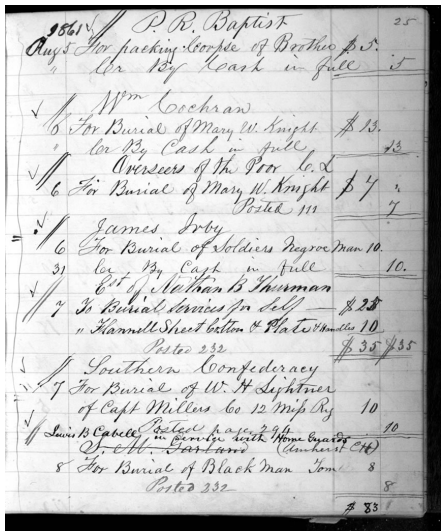 1861 P. R. Baptist 25
Aug 5 For packing Corpse of Brother $ 5.
" Cr By Cash in full 5
Wm Cochran
6 For Burial of Mary W. Knight $ 13.
" Cr By Cash in full 13
Overseers of the Poor C. L
6 For Burial of Mary W. Knight $ 7 "
Posted 111 7
James Irby
6 For Burial of Soldiers Negroe Man 10.
31 Cr By Cash in full 10.
Est of Nathan B Thurman
7 To Burial Services for Self $ 25
" Flannell Sheet Cotton & Plate & Handles 10
Posted 232 $ 35 $ 35
Southern Confederacy
7 For Burial of W. H Lightner
of Capt Millers Co 12 Miss Rg 10
Posted page 294 10
Lewis B Cabell in Service with Home Guards
S. M. Garland (Amherst CH)
8 For Burial of Black Man Tom 8
Posted 232 8
$ 83